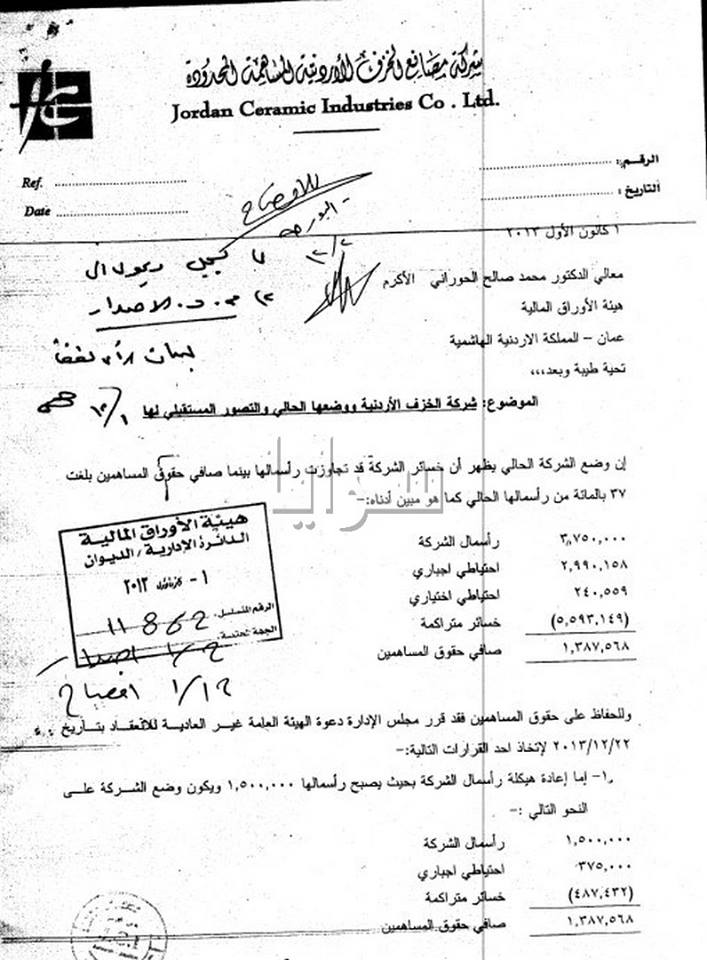 شركة مصانع الخزف الأردنية المساهمة المحدودة
Jordan Ceramic Industries Co . Ltd.
الرقم:
التاريخ:
Ref.
Date
للافصاح
- البورصة
١ كانون الأول ٢٠١٣
معالي الدكتور محمد صالح الحوراني الأكرم
هيئة الأوراق المالية
عمان – المملكة الاردنية الهاشمية
تحية طيبة وبعد،،،
م. د. الاصدار
الموضوع: شركة الخزف الأردنية ووضعها الحالي والتصور المستقبلي لها
سرايا
إن وضع الشركة الحالي يظهر أن خسائر الشركة قد تجاوزت رأسمالها بينما صافي حقوق المساهمين بلغت
٣٧ بالمائة من رأسمالها الحالي كما هو مبين أدناه:-
٣,٧٥٠,٠٠٠ رأسمال الشركة
٢,٩٩٠,١٥٨ احتياطي اجباري
٢٤٠,٥٥٩ احتياطي اختياري
(٥,٥٩٣,١٤٩) خسائر متراكمة
١,٣٨٧,٥٦٨ صافي حقوق المساهمين
هيئة الأوراق المالية
الدائرة الإدارية / الديوان
١ - كانون أول ٢٠١٣
الرقم المتسلسل: 11862
الجهة المختصة:
١/١٢ افصاح
وللحفاظ على حقوق المساهمين فقد قرر مجلس الإدارة دعوة الهيئة العامة غير العادية للانعقاد بتاريخ
٢٠١٣/١٢/٢٢ لإتخاذ احد القرارات التالية:-
١- إما إعادة هيكلة رأسمال الشركة بحيث يصبح رأسمالها ١,٥٠٠,٠٠٠ ويكون وضع الشركة على
النحو التالي :-
١,٥٠٠,٠٠٠ رأسمال الشركة
٣٧٥,٠٠٠ احتياطي اجباري
(٤٨٧,٤٣٢) خسائر متراكمة
١,٣٨٧,٥٦٨ صافي حقوق المساهمين